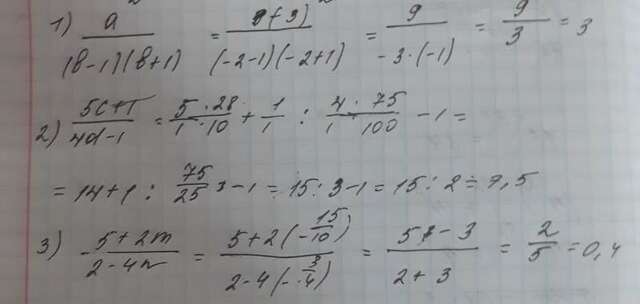 1) a² / (b-1)(b+1) = (-3)² / (-2-1)(-2+1) = 9 / -3·(-1) = 9/3 = 3
2) 5c+1 / 4d-1 = 5·28 / 1·10 + 1/1 : 4·75 / 1·100 - 1 =
= 14+1 : 75/25 - 1 = 15:3-1 = 15:2 = 7,5
3) 5+2m / 2-4n = 5+2(-15/10) / 2-4(-3/4) = 5-3 / 2+3 = 2/5 = 0,4